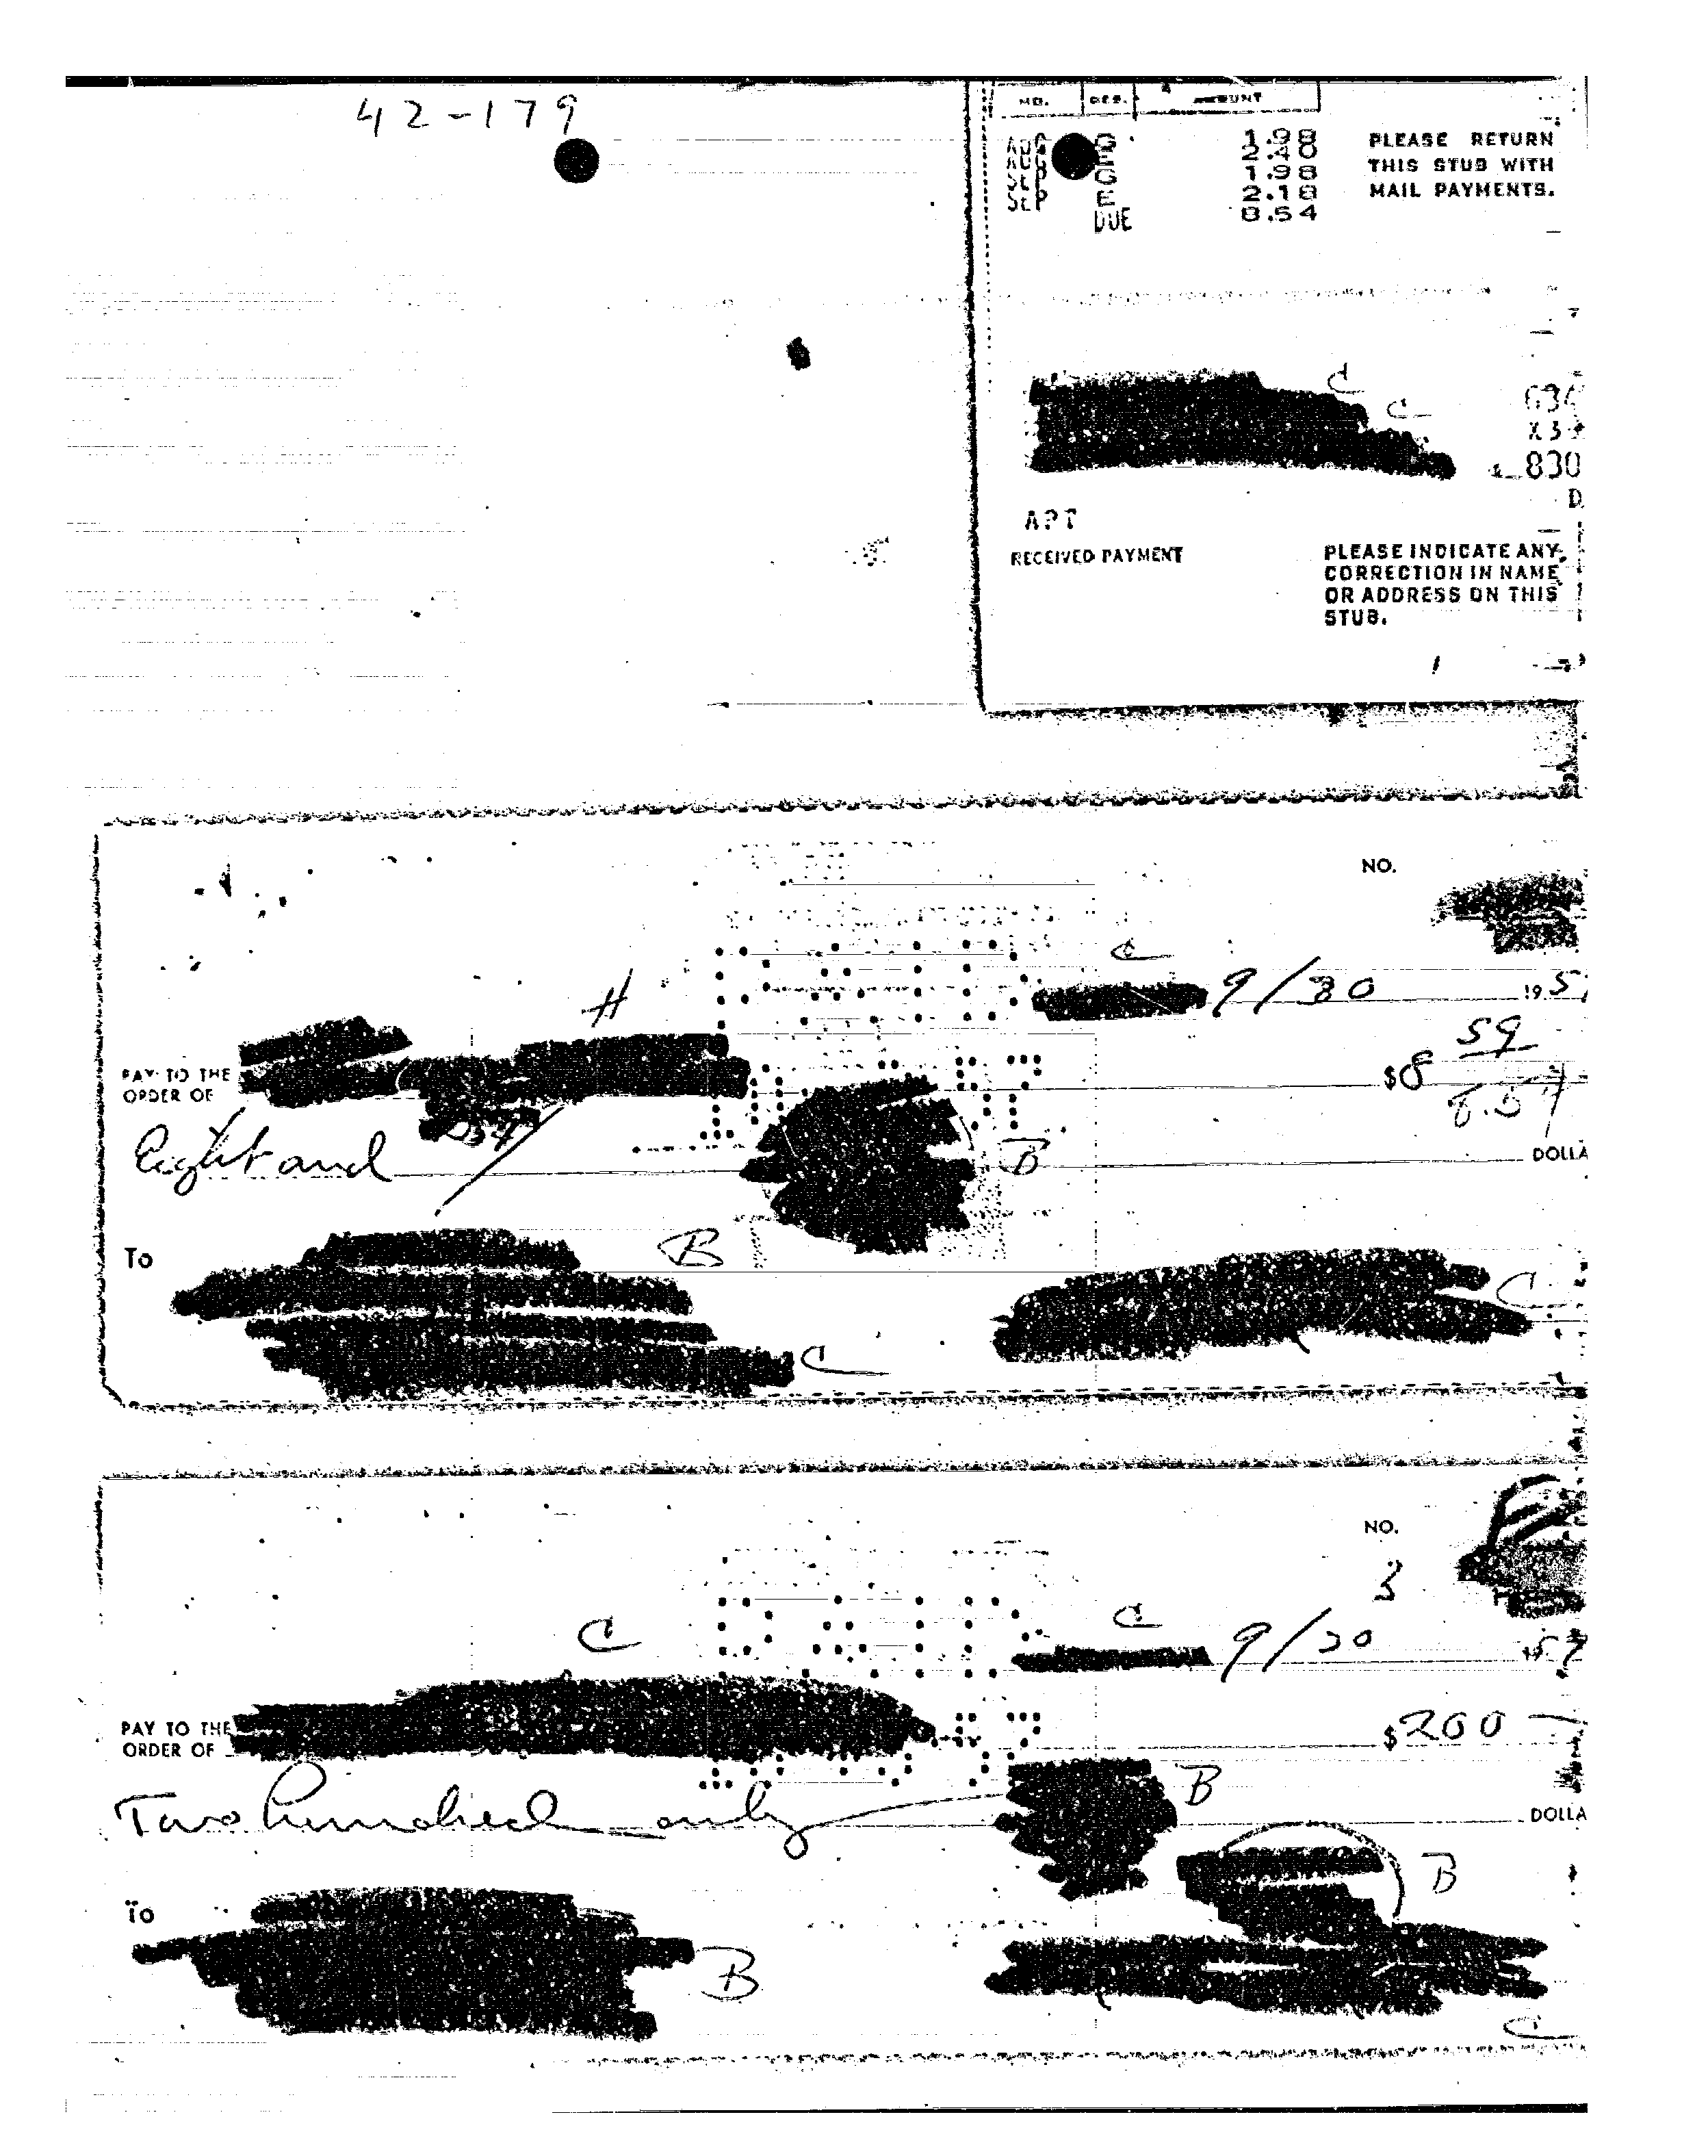 42-179
MO. DES. AMOUNT
AUG G 1.98
AUG E 2.40
SEP G 1.98
SEP E 2.18
DUE 8.54
PLEASE RETURN
THIS STUB WITH
MAIL PAYMENTS.
C
C
830
APT
RECEIVED PAYMENT
PLEASE INDICATE ANY
CORRECTION IN NAME
OR ADDRESS ON THIS
STUB.
NO.
C
9/30 195
H
PAY TO THE
ORDER OF
$8 59
8.54
Eight and
B
DOLLA
To
B
C
C
NO.
3
C
C
9/30 1957
PAY TO THE
ORDER OF
$200
B
Two hundred only
DOLLA
B
To
B
C